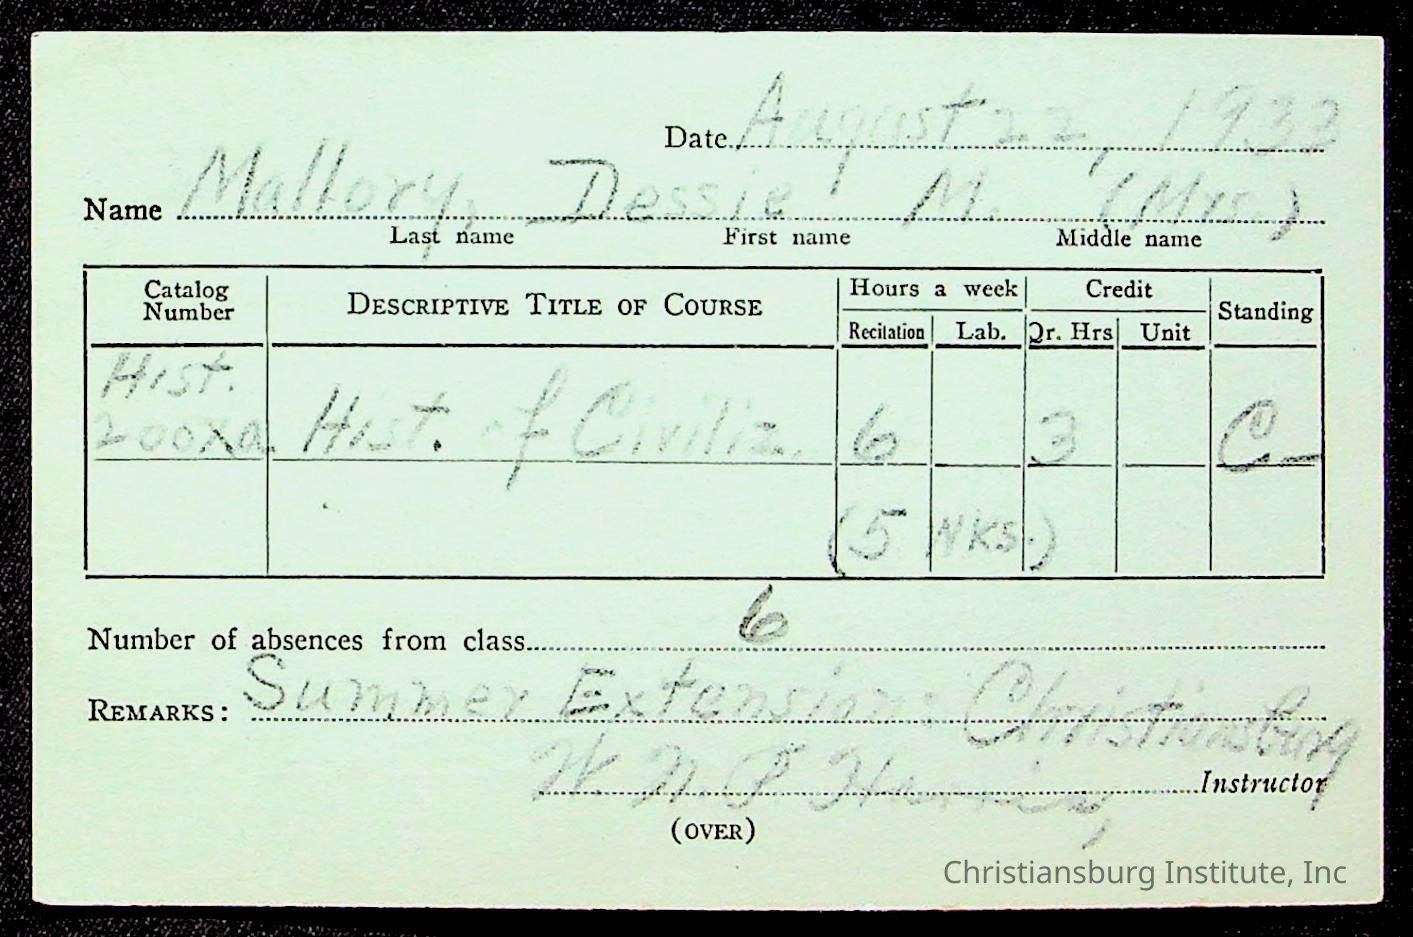 Date August 22, 1933
Name Mallory, Dessie M. (Mrs.)
Last name First name Middle name
Catalog Number DESCRIPTIVE TITLE OF COURSE Hours a week Credit Standing
Recitation Lab. Qr. Hrs Unit
Hist.
200Xa. Hist. of Civiliz. 6 3 C-
(5 wks.)
Number of absences from class 6
REMARKS: Summer Extension: Christiansburg
Instructor
(OVER)
Christiansburg Institute, Inc